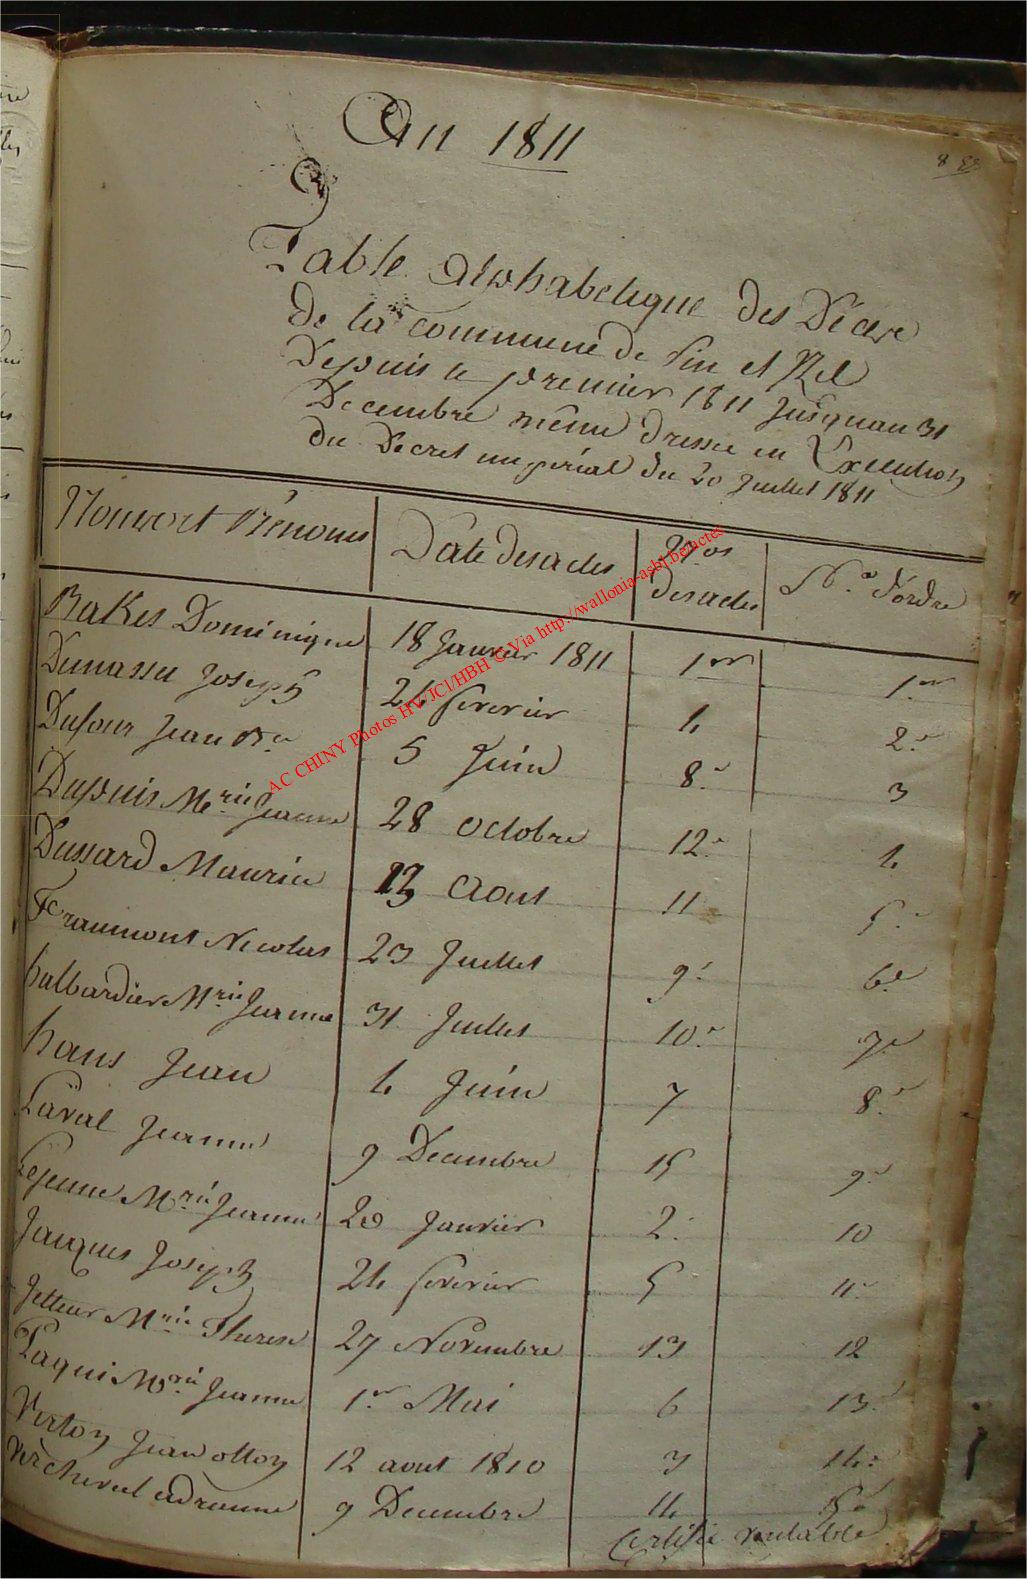 An 1811
8
Table Alphabetique des Décès
de la Commune de Pin et Izel
Depuis le premier 1811 Jusquau 31
Decembre même dressée en Execution
du Decret impérial du 20 Juillet 1811
Noms et Prénoms Date des actes Nos des actes No. d'ordre
Bakes Dominique 18 Janvier 1811 1er 1er
Dumassu Joseph 24 fevrier 4 2e
Dufour Jean Bte 5 Juin 8e 3
Dupuis Mrie Jeanne 28 octobre 12e 4
Dussard Maurice 13 Aout 11 5e
Fraumont Nicolas 23 Juillet 9e 6e
halbardier Mrie Jeanne 31 Juillet 10e 7e
hans Jean 4 Juin 7 8e
Laval Jeanne 9 Decembre 15 9e
Lejeune Mrie Jeanne 20 Janvier 2 10
Jacques Joseph 24 fevrier 5 11e
Jetteur Mrie Therese 27 Novembre 13 12
Paqui Mrie Jeanne 1er Mai 6 13e
Virton Jean otton 12 aout 1810 3 14e
Vercheval adrienne 9 Decembre 14 15e
Certifié veritable
AC CHINY Photos HV/JCl/HBH © Via http://wallonia-asbl.be/actes